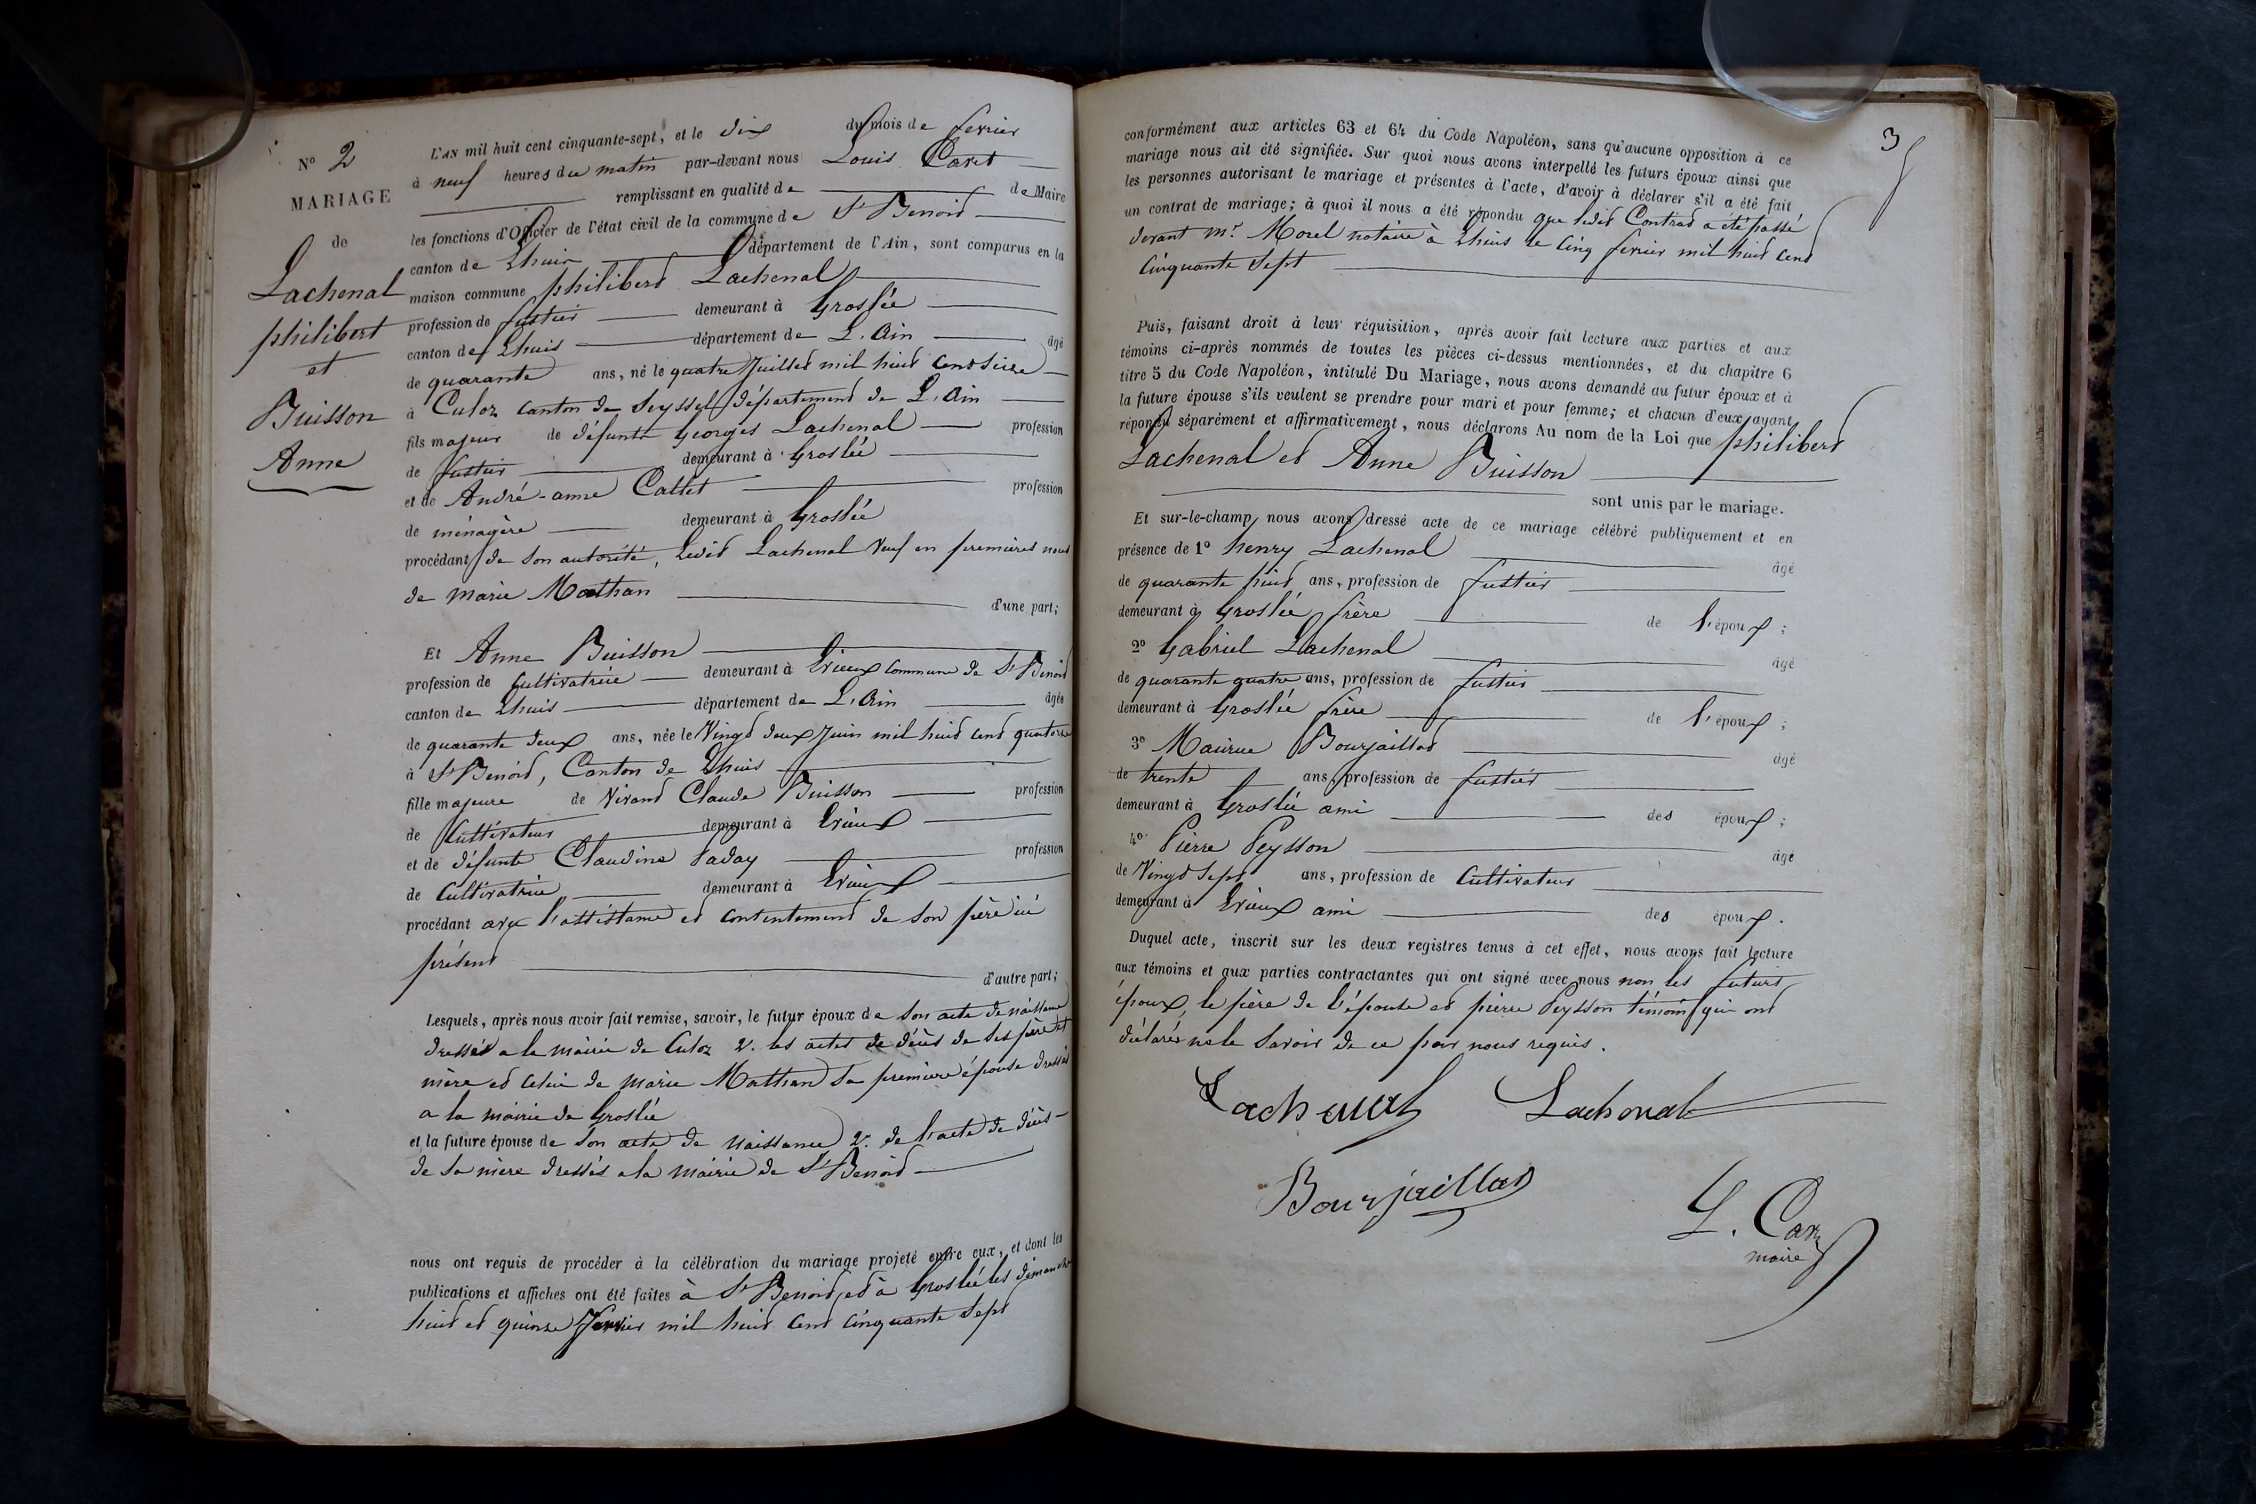 N° 2
MARIAGE
de
Lachenal
philibert
et
Buisson
Anne
L'AN mil huit cent cinquante-sept, et le dix du mois de fevrier
à neuf heures du matin par-devant nous Louis Caret
remplissant en qualité de de Maire
les fonctions d'Officier de l'état civil de la commune de St Benoid
canton de Lhuis département de l'Ain, sont comparus en la
maison commune philiberd Lachenal
profession de fustier demeurant à Groslée
canton de Lhuis département de L'Ain âgé
de quarante ans, né le quatre Juilled mil huid cend seize
à Culoz canton de Seyssel département de L'Ain
fils majeur de défunts Georges Lachenal profession
de fustier demeurant à Groslée
et de André-anne Callet profession
de ménagère demeurant à Groslée
procédant de son autorité, ledid Lachenal Veuf en premières noces
de marie Mathan d'une part;
Et Anne Buisson
profession de Cultivatrice demeurant à Evieux commune de St Benoid
canton de Lhuis département de L'Ain âgée
de quarante deux ans, née le Vingd deux Juin mil huid cend quatorze
à St Benoid, Canton de Lhuis
fille majeure de Vivand Claude Buisson profession
de Cultivateur demeurant à Evieux
et de défunte Claudine Paday profession
de Cultivatrice demeurant à Evieux
procédant avec l'assistance ed consentemend de son père ici
présend d'autre part;
Lesquels, après nous avoir fait remise, savoir, le futur époux de son acte de naissance
dressé a la mairie de Culoz 2°. les actes de décès de ses père et
mère ed celui de marie Mathan sa première épouse dressés
a la mairie de Groslée
et la future épouse de son acte de Naissance 2°. de l'acte de décès
de sa mère dressés a la mairie de St Benoid
nous ont requis de procéder à la célébration du mariage projeté entre eux, et dont les
publications et affiches ont été faites à St Benoid, ed à Groslée les dimanches
huid ed quinze fevrier mil huid cend cinquante sept
3
conformément aux articles 63 et 64 du Code Napoléon, sans qu'aucune opposition à ce
mariage nous ait été signifiée. Sur quoi nous avons interpellé les futurs époux ainsi que
les personnes autorisant le mariage et présentes à l'acte, d'avoir à déclarer s'il a été fait
un contrat de mariage; à quoi il nous a été répondu que ledid Contrad a été passé
devant Mr. Morel notaire à Lhuis le cinq fevrier mil huid cend
cinquante Sept
Puis, faisant droit à leur réquisition, après avoir fait lecture aux parties et aux
témoins ci-après nommés de toutes les pièces ci-dessus mentionnées, et du chapitre 6
titre 5 du Code Napoléon, intitulé Du Mariage, nous avons demandé au futur époux et à
la future épouse s'ils veulent se prendre pour mari et pour femme; et chacun d'eux ayant
répondu séparément et affirmativement, nous déclarons Au nom de la Loi que philiberd
Lachenal ed Anne Buisson
sont unis par le mariage.
Et sur-le-champ nous avons dressé acte de ce mariage célébré publiquement et en
présence de 1° henry Lachenal âgé
de quarante huid ans, profession de fustier
demeurant à Groslée frère de l'époux;
2° Gabriel Lachenal âgé
de quarante quatre ans, profession de fustier
demeurant à Groslée frère de l'époux;
3° Maurice Bourjaillad âgé
de trente ans, profession de fustier
demeurant à Groslée ami des époux;
4° Pierre Peysson âgé
de Vingd Sept ans, profession de Cultivateur
demeurant à Evieux ami des époux.
Duquel acte, inscrit sur les deux registres tenus à cet effet, nous avons fait lecture
aux témoins et aux parties contractantes qui ont signé avec nous non les futurs
époux, le père de l'épouse ed pierre Peysson témoin qui ond
déclarés ne le Savoir de ce par nous requis.
Lachenal Lachonal
Bourjaillad
L. Care
maire